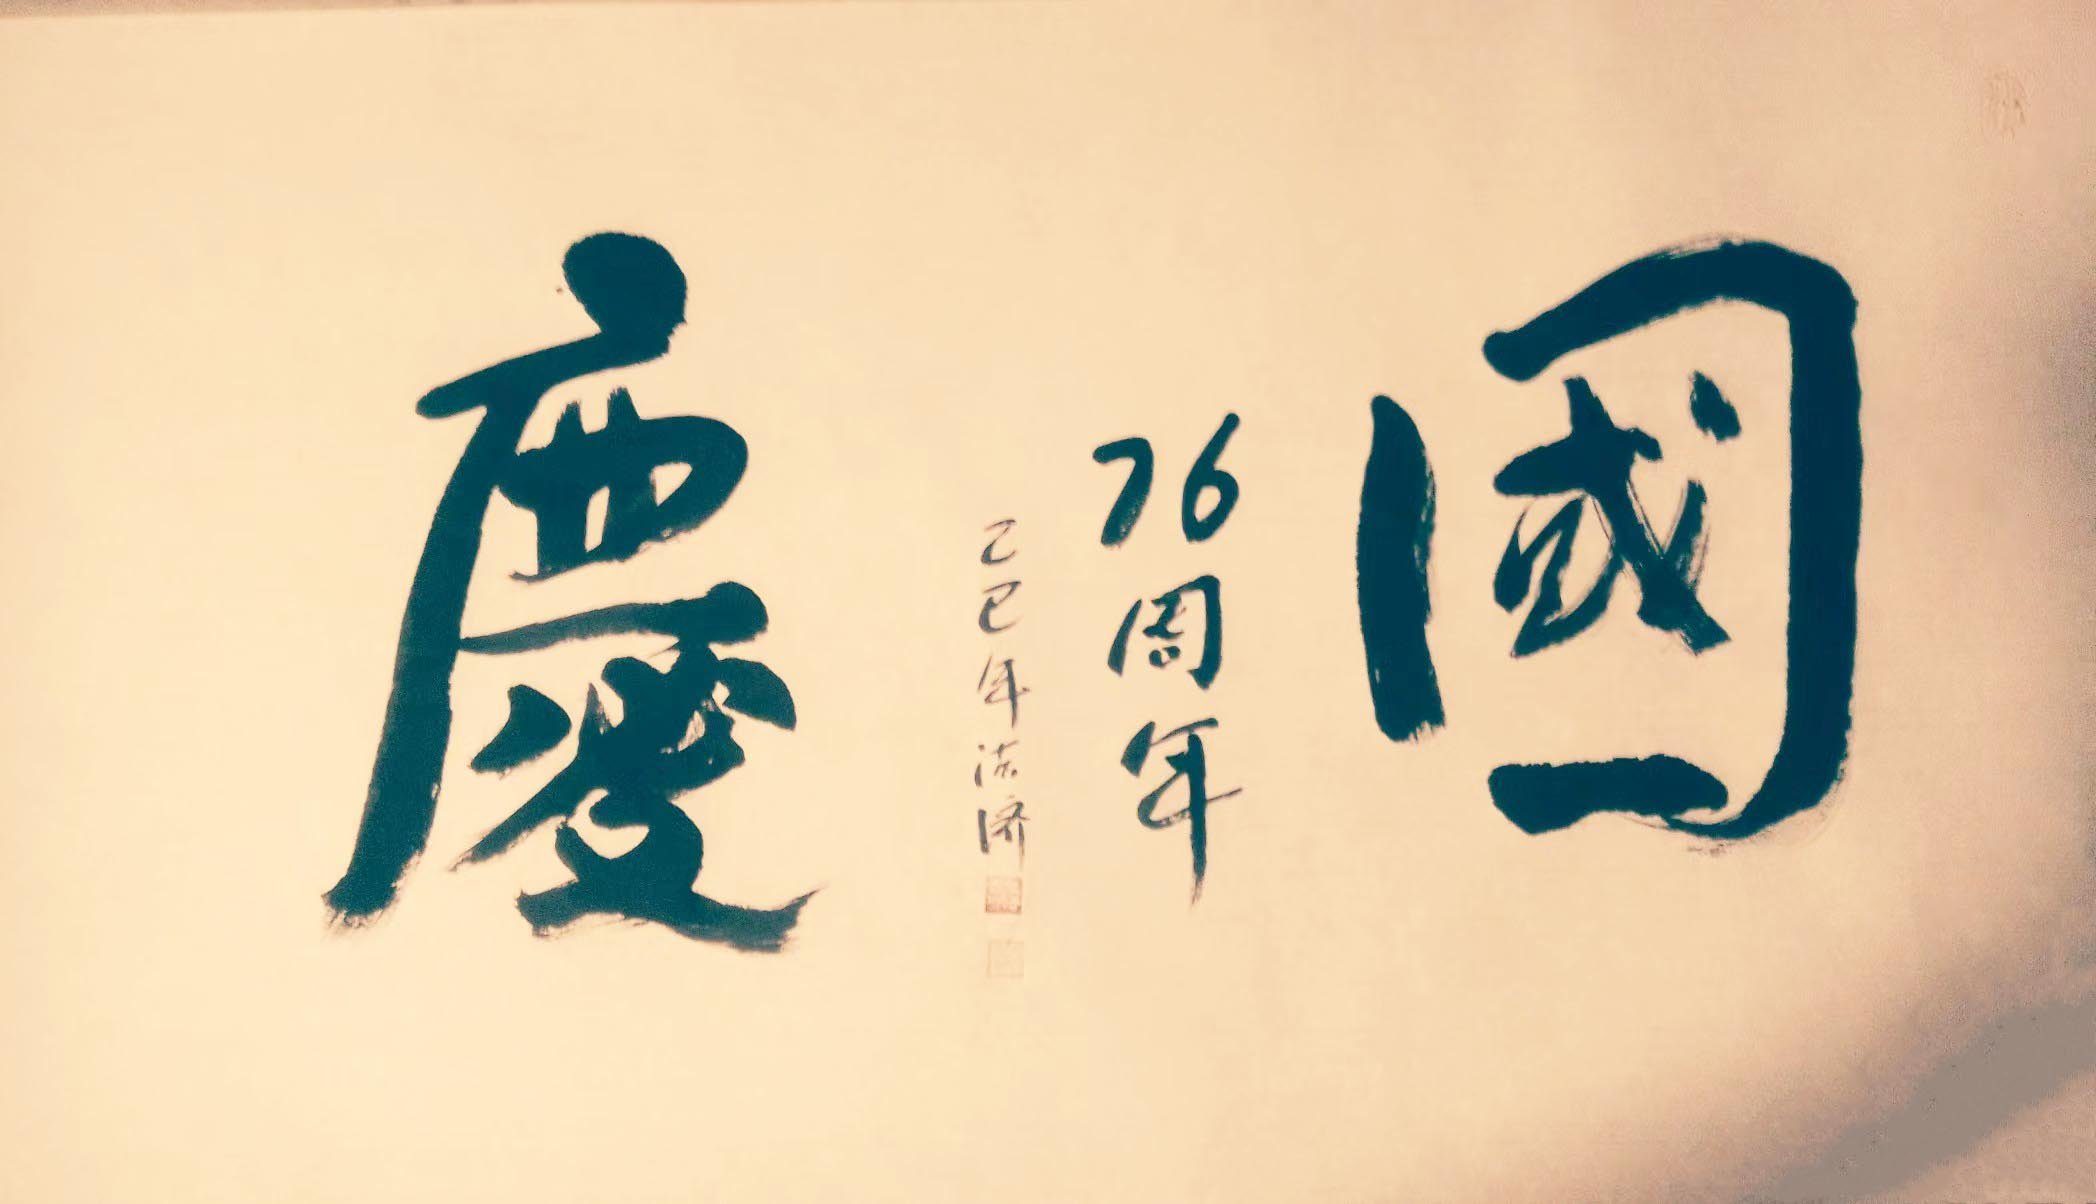 國
76周年
乙巳年法济
慶